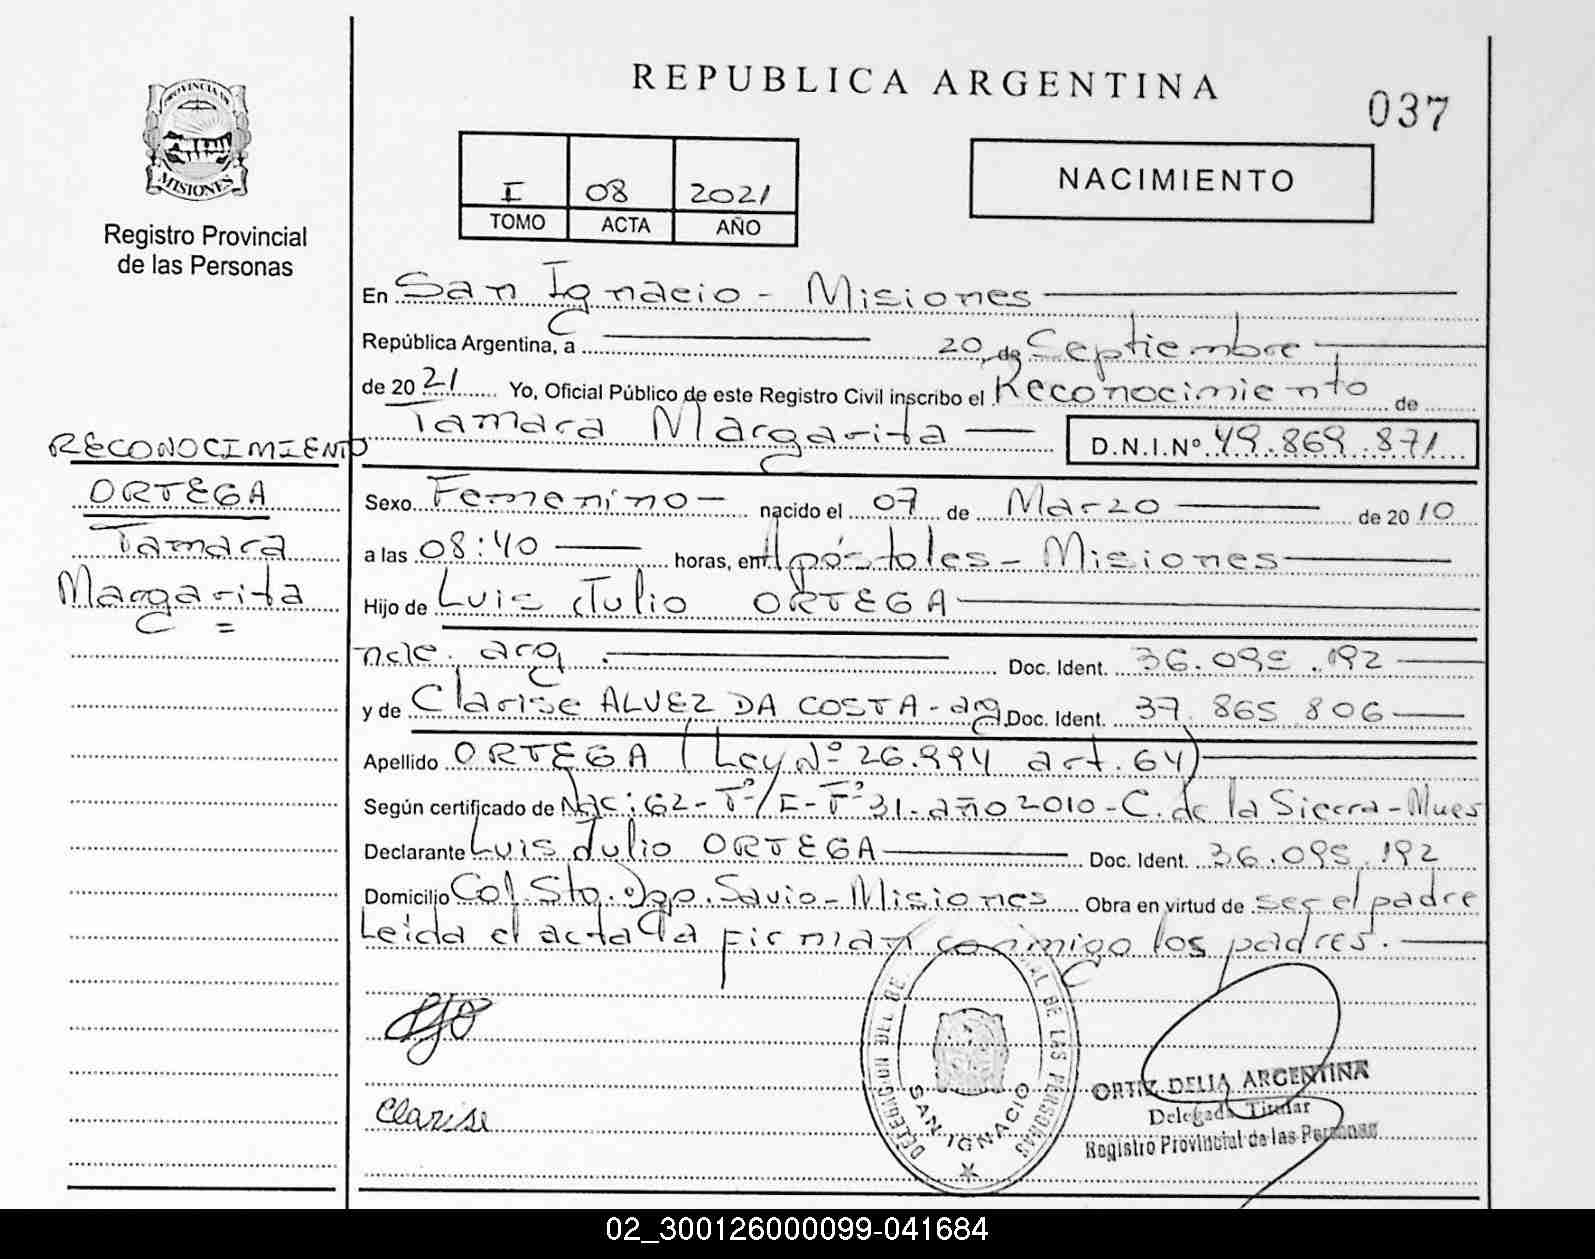 REPUBLICA ARGENTINA
037
PROVINCIA DE
MISIONES
Registro Provincial
de las Personas
I 08 2021
TOMO ACTA AÑO
NACIMIENTO
En San Ignacio - Misiones
República Argentina, a 20 de Septiembre
de 2021 Yo, Oficial Público de este Registro Civil inscribo el Reconocimiento de
Tamara Margarita D.N.I.Nº 49.869.871
RECONOCIMIENTO
ORTEGA
Tamara
Margarita
Sexo Femenino - nacido el 07 de Marzo de 2010
a las 08:40 horas, en Apóstoles - Misiones
Hijo de Luis Julio ORTEGA
ncle. arg. Doc. Ident. 36.095.192
y de Clarise ALVEZ DA COSTA - arg Doc. Ident. 37.865.806
Apellido ORTEGA (Ley Nº 26.994 art. 64)
Según certificado de Nac: 62 - Tº/I - Fº 31 - año 2010 - C. de la Sierra - Mnes
Declarante Luis Julio ORTEGA Doc. Ident. 36.095.192
Domicilio Col. Sto. Dgo. Savio - Misiones Obra en virtud de ser el padre
Leída el acta la firman conmigo los padres.
Clarise
DELEGACION DEL DE LAS PERSONAS
SAN IGNACIO
ORTIZ DELIA ARGENTINA
Delegada Titular
Registro Provincial de las Personas
02_300126000099-041684